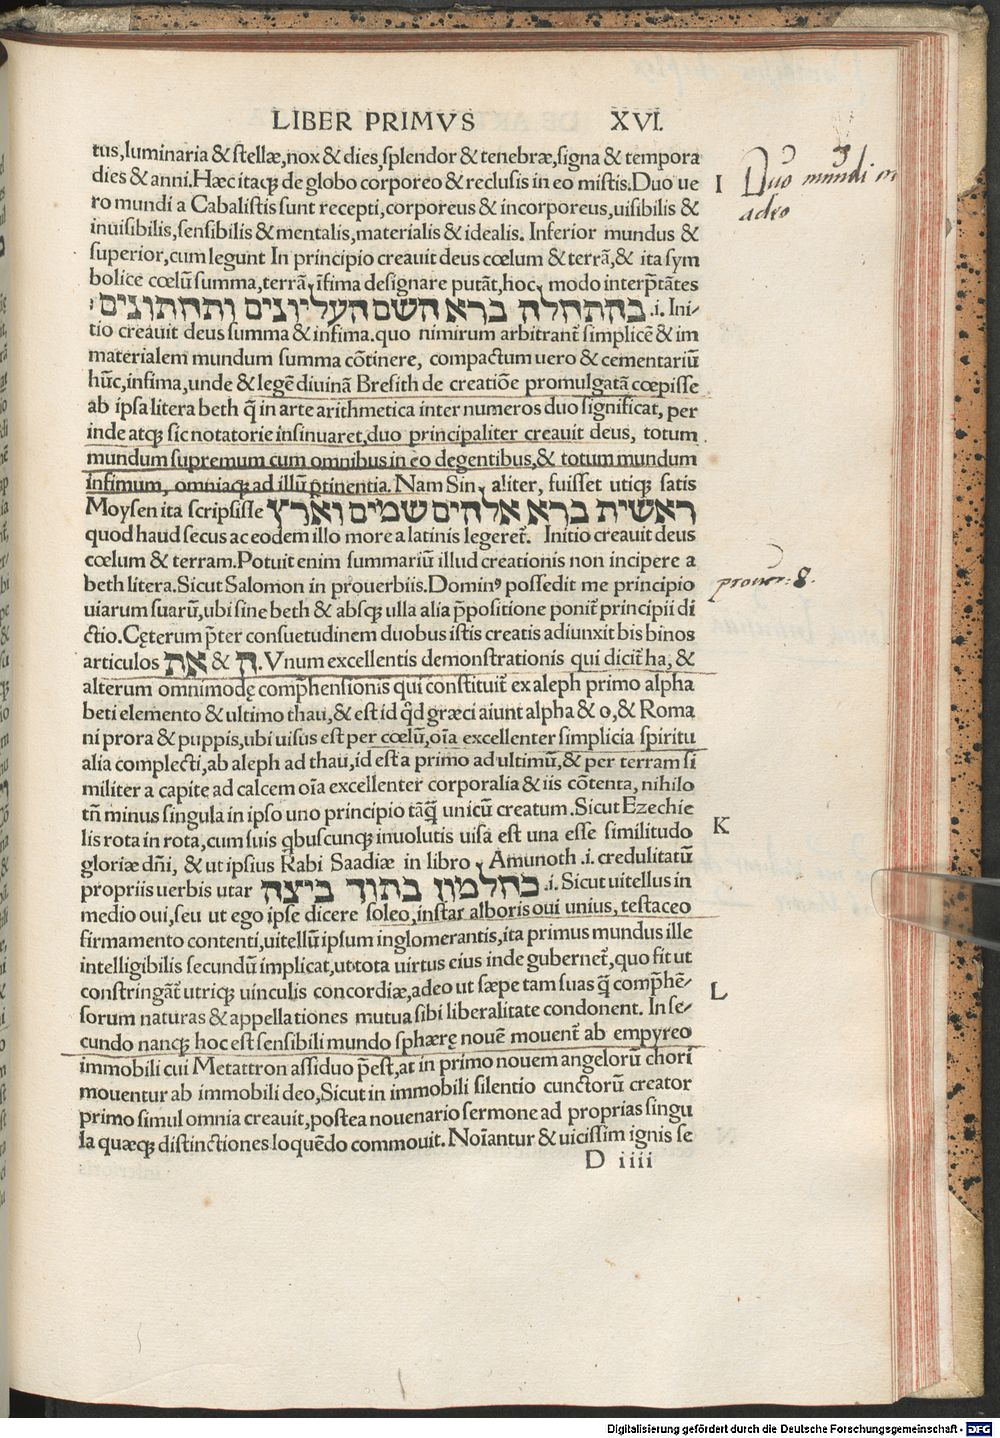 LIBER PRIMVS XVI.
tus,luminaria & stellæ,nox & dies,splendor & tenebræ,signa & tempora
dies & anni.Hæc itaqꝫ de globo corporeo & reclusis in eo mistis.Duo ue
I
ro mundi a Cabalistis sunt recepti,corporeus & incorporeus,uisibilis &
inuisibilis,sensibilis & mentalis,materialis & idealis. Inferior mundus &
superior,cum legunt In principio creauit deus cœlum & terrã,& ita sym
bolice cœlũ summa,terrã ĩfima designare putãt,hoc modo interp̃tãtes
בהתחלה ברא השם העליונים ותחתונים: .i. Ini-
tio creauit deus summa & infima.quo nimirum arbitrant̃ simplicẽ & im
materialem mundum summa cõtinere, compactum uero & cementariũ
hũc,infima,unde & legẽ diuinã Bresith de creatiõe promulgatã cœpisse
ab ipsa litera beth q̃ in arte arithmetica inter numeros duo significat, per
inde atqꝫ sic notatorie insinuaret,duo principaliter creauit deus, totum
mundum supremum cum omnibus in eo degentibus,& totum mundum
infimum, omniaqꝫ ad illũ p̃tinentia. Nam Sin aliter, fuisset utiqꝫ satis
Moysen ita scripsisse ראשית ברא אלהים שמים וארץ
quod haud secus ac eodem illo more a latinis legeret̃. Initio creauit deus
cœlum & terram.Potuit enim summariũ illud creationis non incipere a
beth litera.Sicut Salomon in prouerbiis.Dominꝰ possedit me principio
uiarum suarũ,ubi sine beth & absqꝫ ulla alia p̃positione ponit̃ principii di
ctio.Cęterum p̃ter consuetudinem duobus istis creatis adiunxit bis binos
articulos את & ה.Vnum excellentis demonstrationis qui dicit̃ ha, &
alterum omnimodę comp̃hensionis qui constituit̃ ex aleph primo alpha
beti elemento & ultimo thau,& est id qđ græci aiunt alpha & o,& Roma
ni prora & puppis,ubi uisus est per cœlũ,oĩa excellenter simplicia spiritu
alia complecti,ab aleph ad thau,id est a primo ad ultimũ,& per terram si
militer a capite ad calcem oĩa excellenter corporalia & iis cõtenta, nihilo
tñ minus singula in ipso uno principio tãq̃ unicũ creatum.Sicut Ezechie
K
lis rota in rota,cum suis qbuscunqꝫ inuolutis uisa est una esse similitudo
gloriæ dñi, & ut ipsius Rabi Saadiæ in libro Amunoth .i. credulitatũ
propriis uerbis utar כחלמון בתוך ביצה .i. Sicut uitellus in
medio oui,seu ut ego ipse dicere soleo,instar alboris oui unius, testaceo
firmamento contenti,uitellũ ipsum inglomerantis,ita primus mundus ille
intelligibilis secundũ implicat,ut tota uirtus eius inde gubernet̃,quo fit ut
constringãt̃ utriqꝫ uinculis concordiæ,adeo ut sæpe tam suas q̃ comp̃hẽ-
L
sorum naturas & appellationes mutua sibi liberalitate condonent. In se-
cundo nanqꝫ hoc est sensibili mundo sphærę nouẽ mouent̃ ab empyreo
immobili cui Metattron assiduo p̃est,at in primo nouem angelorũ chori
mouentur ab immobili deo,Sicut in immobili silentio cunctorũ creator
primo simul omnia creauit,postea nouenario sermone ad proprias singu
la quæqꝫ distinctiones loquẽdo commouit. Noĩantur & uicissim ignis se
D iiii
Duo mundi in
adeo
prouer: 8.
Digitalisierung gefördert durch die Deutsche Forschungsgemeinschaft - DFG